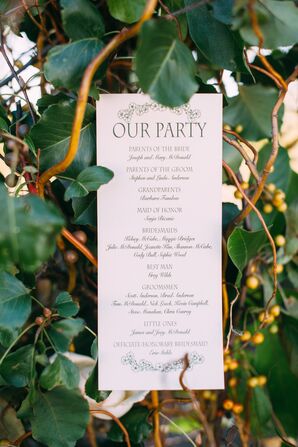 OUR PARTY
PARENTS OF THE BRIDE
Joseph and Mary McDonald
PARENTS OF THE GROOM
Stephen and Linda Anderson
GRANDPARENTS
Barbara
MAID OF HONOR
Sonja
BRIDESMAIDS
McCabe, Maggie Bridges
Julie McDonald, Jeanette Shannon McCabe,
Cody Bull, Sophie Wood
BEST MAN
Greg Wilds
GROOMSMEN
Scott Anderson, Brad Anderson
Tom McDonald, Nick Kevin Campbell,
Steve Chris
LITTLE ONES
James and Joey McDonald
OFFICIATE/HONORARY BRIDESMAID
Erin